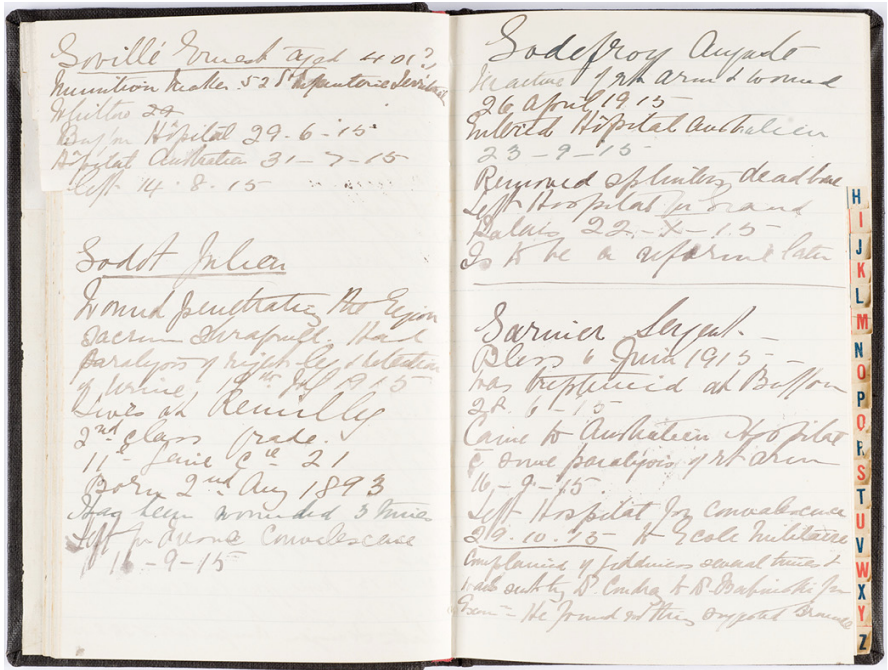 Goville Ernest aged 40 ?
Munition Maker 52 Infanterie
29
Buffon Hôpital 29.6.15
Hôpital Australien 31-7-15
left 14.8.15
Godot Julien
Wound penetrating the region
sacrum shrapnell. Had
paralysis of right leg & retention
of urine 1915
Lives at Remilly
2nd class grade.
11e Genie Cie 21
Born 2nd Aug 1893
Has been wounded 3 times
left for Convalescence
16-9-15
Godefroy Auguste
Fracture of rt arm & wound
26 April 1915
Entered Hôpital Australien
23-9-15
Removed splinters dead bone
Left Hospital for Grand
Palais 22-X-15
Is to be a reformé later
Garnier Sergent
Bless 6 Juin 1915 -
was trephined at Buffon
28.6-15
Came to Australien Hospital
c some paralysis of rt arm
16-9-15.
Left Hospital for convalescence
29.10.15 to Ecole Militaire
Complained of giddiness several times &
was sent by Dr. to Dr Babinski for
Exam - He found nothing
H
I
J
K
L
M
N
O
P
Q
R
S
T
U
V
W
X
Y
Z